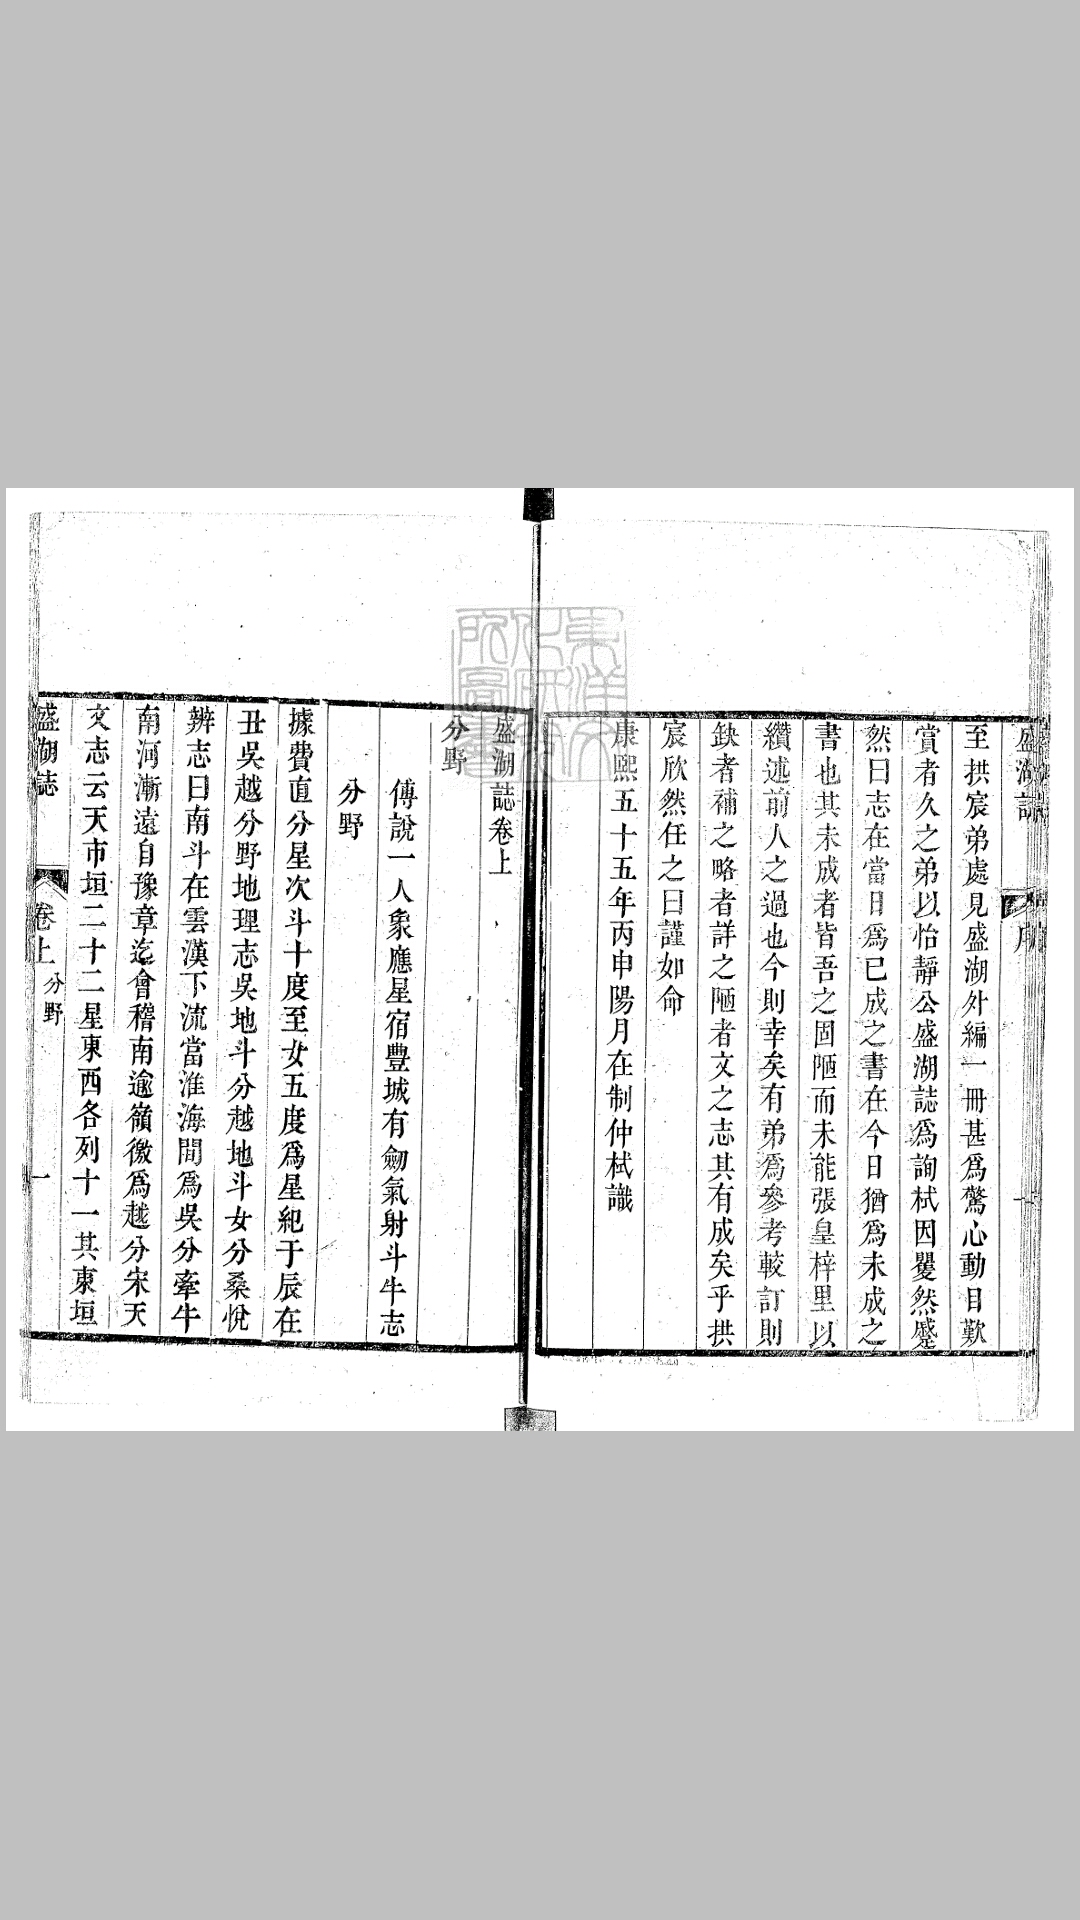 盛湖誌
序
至拱宸弟處見盛湖外編一冊甚爲驚心動目歎
賞者久之弟以怡靜公盛湖誌爲詢栻因矍然蹙
然曰志在當日爲已成之書在今日猶爲未成之
書也其未成者皆吾之固陋而未能張皇梓里以
纘述前人之過也今則幸矣有弟爲參考較訂則
缺者補之略者詳之陋者文之志其有成矣乎拱
宸欣然任之曰謹如命
康熙五十五年丙申陽月在制仲栻識
盛湖誌卷上
分野
傅說一人象應星宿豐城有劒氣射斗牛志
分野
據費直分星次斗十度至女五度爲星紀于辰在
丑吳越分野地理志吳地斗分越地斗女分桑悅
辨志曰南斗在雲漢下流當淮海間爲吳分牽牛
南河漸遠自豫章迄會稽南逾嶺徼爲越分宋天
文志云天市垣二十二星東西各列十一其東垣
盛湖誌
卷上
分野
一